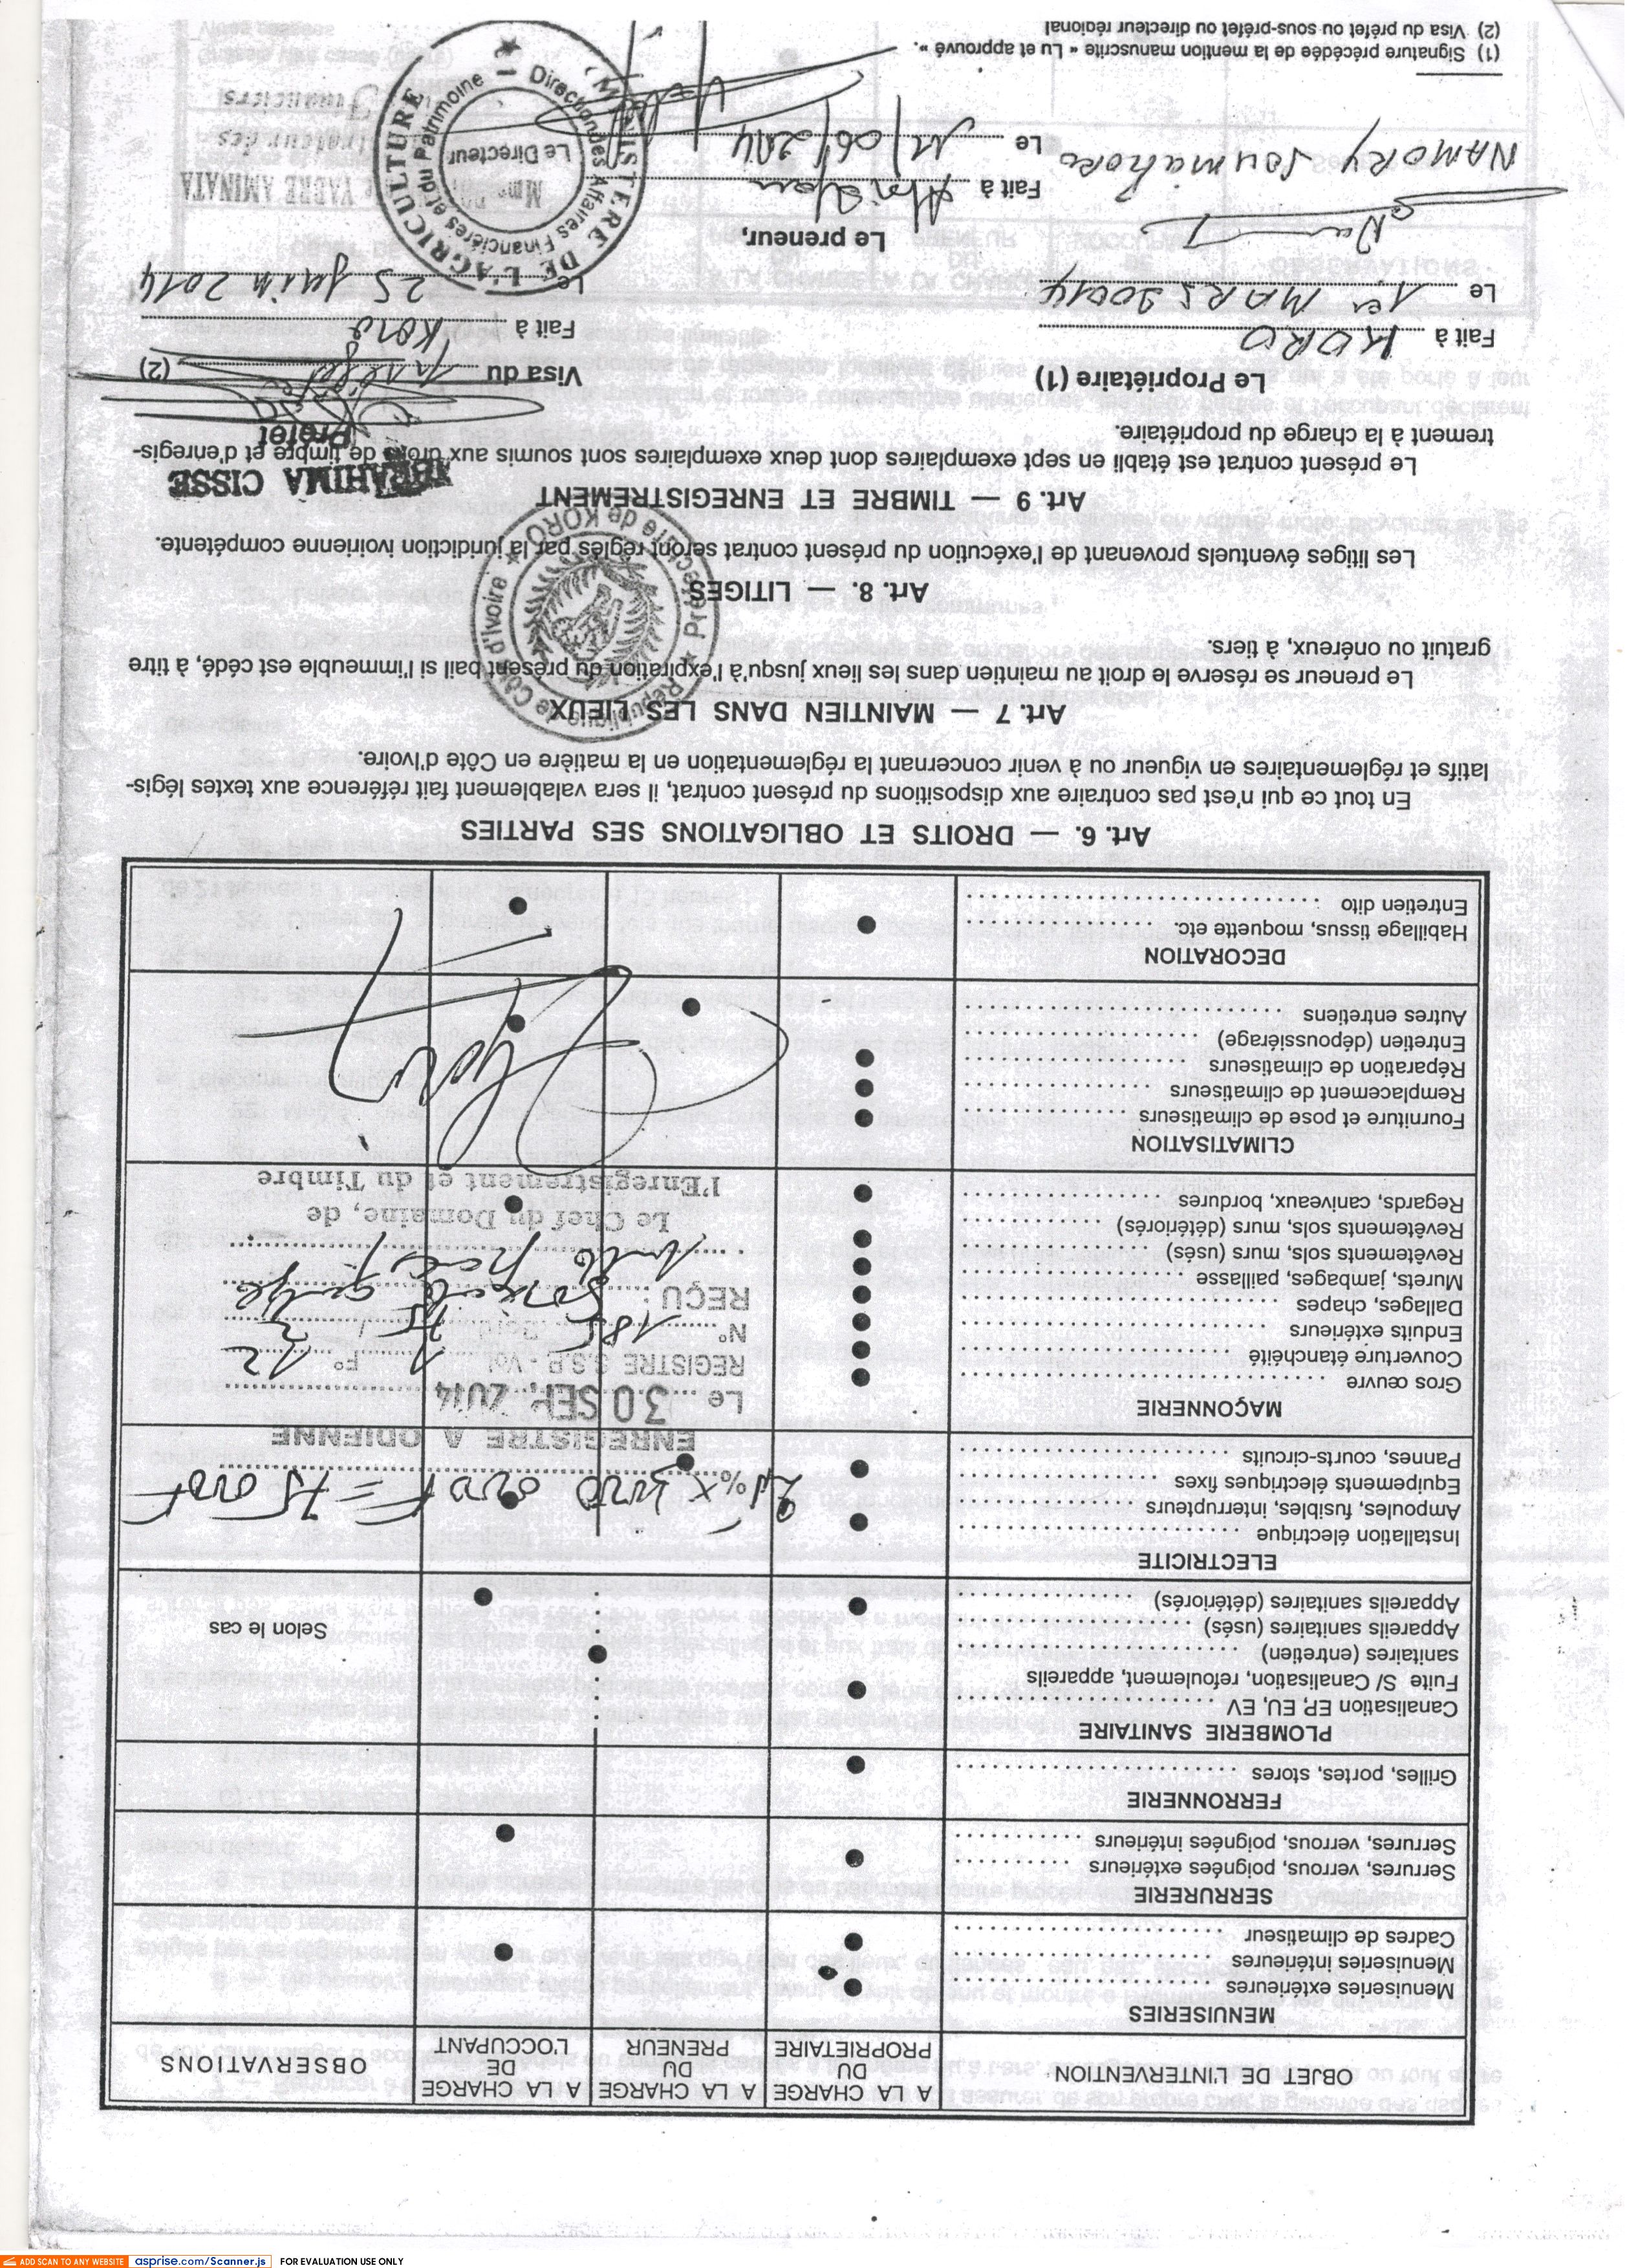 OBJET DE L'INTERVENTION
A LA CHARGE DU PROPRIETAIRE
A LA CHARGE DU PRENEUR
A LA CHARGE DE L'OCCUPANT
OBSERVATIONS
MENUISERIES
Menuiseries extérieures
Menuiseries intérieures
Cadres de climatiseur
SERRURERIE
Serrures, verrous, poignées extérieurs
Serrures, verrous, poignées intérieurs
FERRONNERIE
Grilles, portes, stores
PLOMBERIE SANITAIRE
Canalisation EP, EU, EV
Fuite S/ Canalisation, refoulement, appareils
sanitaires (entretien)
Appareils sanitaires (usés)
Appareils sanitaires (détériorés)
Selon le cas
ELECTRICITE
Installation électrique
Ampoules, fusibles, interrupteurs
Equipements électriques fixes
Pannes, courts-circuits
= 75 000 F
ENREGISTRE A ODIENNE
MAÇONNERIE
Gros œuvre
Couverture étanchéité
Enduits extérieurs
Dallages, chapes
Murets, jambages, paillasse
Revêtements sols, murs (usés)
Revêtements sols, murs (détériorés)
Regards, caniveaux, bordures
Le 30 SEP. 2014
REGISTRE S.S.P - Vol 1 F° 12
N° 185
REÇU :
Le Chef du Domaine, de
l'Enregistrement et du Timbre
CLIMATISATION
Fourniture et pose de climatiseurs
Remplacement de climatiseurs
Réparation de climatiseurs
Entretien (dépoussiérage)
Autres entretiens
DECORATION
Habillage tissus, moquette etc.
Entretien dito
Art. 6. — DROITS ET OBLIGATIONS SES PARTIES
En tout ce qui n'est pas contraire aux dispositions du présent contrat, il sera valablement fait référence aux textes légis-
latifs et réglementaires en vigueur ou à venir concernant la réglementation en la matière en Côte d'Ivoire.
Art. 7 — MAINTIEN DANS LES LIEUX
Le preneur se réserve le droit au maintien dans les lieux jusqu'à l'expiration du présent bail si l'immeuble est cédé, à titre
gratuit ou onéreux, à tiers.
République de Côte d'Ivoire ★ Préfecture de KORO ★
Art. 8. — LITIGES
Les litiges éventuels provenant de l'exécution du présent contrat seront réglés par la juridiction ivoirienne compétente.
Art. 9 — TIMBRE ET ENREGISTREMENT
Le présent contrat est établi en sept exemplaires dont deux exemplaires sont soumis aux droits de timbre et d'enregis-
trement à la charge du propriétaire.
IBRAHIMA CISSE
Préfet
Le Propriétaire (1)
Fait à KORO
Le 1er MARS 20014
NAMORY Soumahoro
Visa du Préfet (2)
Fait à Koro
Le 25 Juin 2014
Le preneur,
Fait à Abidjan
Le 11/06/2014
MINISTERE DE L'AGRICULTURE
Direction des Affaires Financières et du Patrimoine
Le Directeur
Mme
YABRE AMINATA
Financiers
(1) Signature précédée de la mention manuscrite « Lu et approuvé ».
(2) Visa du préfet ou sous-préfet ou directeur régional
ADD SCAN TO ANY WEBSITE asprise.com/Scanner.js FOR EVALUATION USE ONLY